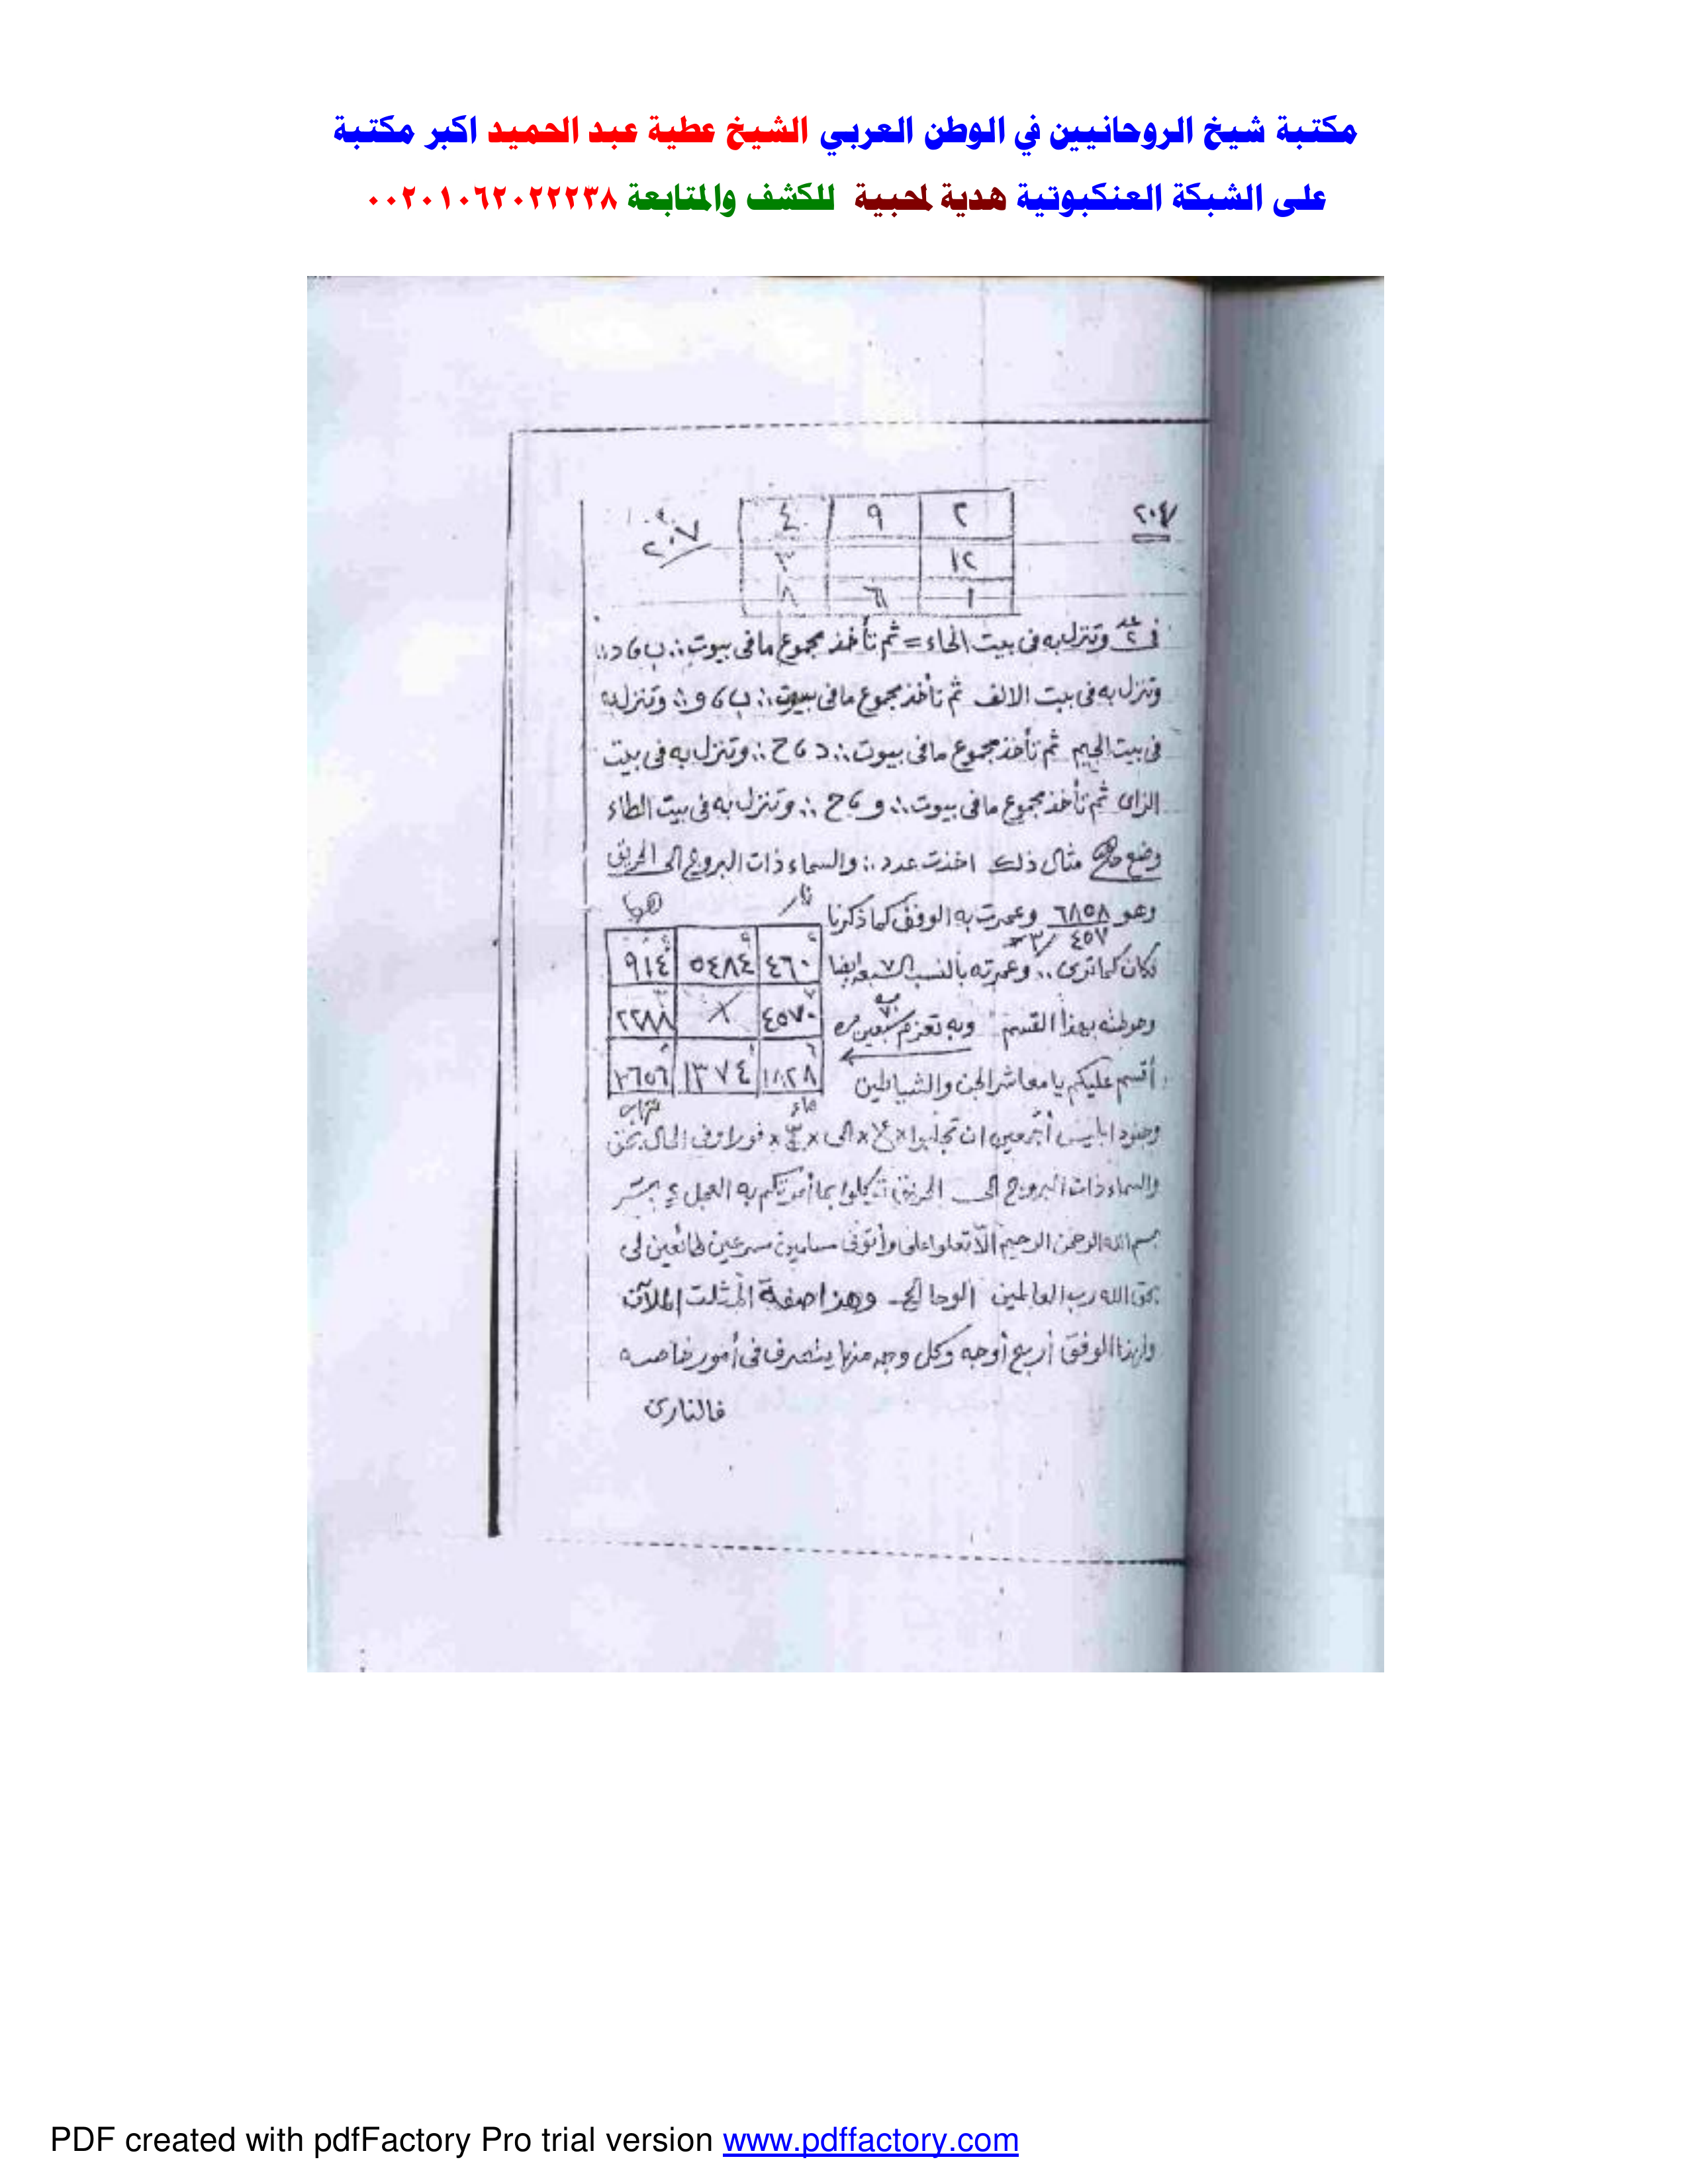 مكتبة شيخ الروحانيين في الوطن العربي الشيخ عطية عبد الحميد اكبر مكتبة
على الشبكة العنكبوتية هدية لمحبية للكشف والمتابعة ٠٠٢٠١٠٦٢٠٢٢٢٣٨
٢٠٤
٢ ٩ ٤
٢٠٧
١٢ ٣
١ ٦ ٨
وتنزل به فى بيت الحاء = ثم تأخذ مجموع ما فى بيوت ∴ ب ٦ د ∴
وتنزل به فى بيت الالف ثم تأخذ مجموع ما فى بيوت ∴ ب ٦ و ∴ وتنزل به
فى بيت الجيم ثم تأخذ مجموع ما فى بيوت ∴ د ٦ ح ∴ وتنزل به فى بيت
الزاى ثم تأخذ مجموع ما فى بيوت ∴ و ٦ ح ∴ وتنزل به فى بيت الطاء
وضع مثال ذلك اخذت عدد ∴ والسماء ذات البروج الى الحريق
وهو ٦٨٥٨ وعمرت به الوفق كما ذكرنا
نار هوا
٤٥٧ ٣
فكان كما ترى ∴ وعمرته بالنسب السبعه ايضا
٤٦٠ ٥٤٨٤ ٩١٤
بهذا القسم وبه تعزم سبعين مره
٤٥٧٠ ٢٢٨٨
أقسم عليكم يا معاشر الجن والشياطين
١٨٢٨ ١٣٧٤ ٣٦٥٦
ماء تراب
وجنود ابليس أجمعين ان تجلبوا × الى × فورا وفى الحال بحق
والسماء ذات البروج الى الحريق بما أمرتكم به العجل
بسم الله الرحمن الرحيم ألا تعلوا على وأتونى مسلمين مسرعين طائعين لى
بحق الله رب العالمين الوحا الخ - وهذا صفة المثلث الملآن
ولهذا الوفق أربع أوجه وكل وجه منها يتصرف فى أمور خاصه
فالنارى
PDF created with pdfFactory Pro trial version www.pdffactory.com